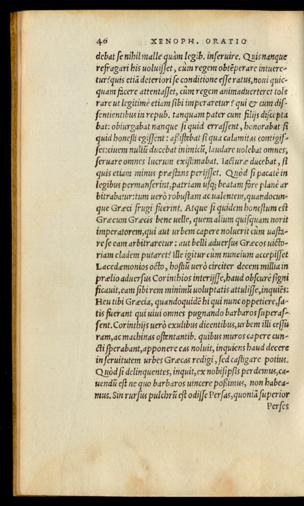 46 XENOPH. ORATIO
debat se nihil malle quàm legib. inseruire. Quis nanque
refragari his voluisset, cùm regem obtẽperare intuere-
tur? quis etiã deteriori se conditione esse ratus, noui quic-
quam facere attentasset, cùm regem animaduerteret tole
rare ut legitimè etiam sibi imperaretur? qui & cum dis-
sentientibus in repub. tanquam pater cum filijs discepta
bat: obiurgabat nanque si quid errassent, honorabat si
quid honesti egissent: assistebat si qua calamitas contigis-
set: ciuem nullũ ducebat inimicũ, laudare uolebat omnes,
seruare omnes lucrum existimabat. Iacturæ ducebat, si
quis etiam minus præstans perijsset. Quòd si pacatè in
legibus permanserint, patriam usq; beatam fore planè ar
bitrabatur: tum uerò robustam ac ualentem, quandocun-
que Græci frugi fuerint. Atque si quidem honestum est
Græcum Græcis bene uelle, quem alium quisquam norit
imperatorem, qui aut urbem capere noluerit cùm uasta-
re se eam arbitraretur: aut belli aduersus Græcos uicto-
riam cladem putaret? ille igitur cùm nuncium accepisset
Lacedæmonios octo, hostiũ uerò circiter decem millia in
prælio aduersus Corinthios interijsse, haud obscurè signi
ficauit, eam sibi rem minimũ uoluptatis attulisse, inquiẽs:
Heu tibi Græcia, quandoquidẽ hi qui nunc oppetiere, sa-
tis fuerant qui uiui omnes pugnando barbaros superas-
sent. Corinthijs uerò exulibus dicentibus, urbem illi cessu
ram, ac machinas ostentantib. quibus muros capere cun-
cti sperabant, apponere eas noluit, inquiens haud decere
in seruitutem urbes Græcas redigi, sed castigare potius.
Quòd si delinquentes, inquit, ex nobisipsis perdemus, ca-
uendũ est ne quo barbaros uincere possimus, non habea-
mus. Sin rursus pulchrũ est odisse Persas, quoniã superior
Perses